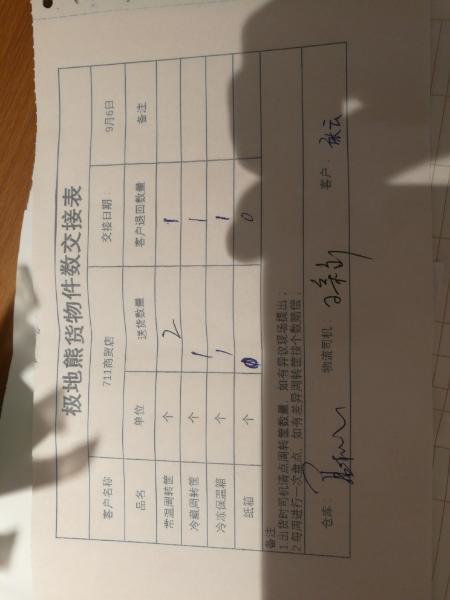 极地熊货物件数交接表
客户名称 711商贸店 交接日期： 9月6日
品名 单位 送货数量 客户退回数量 备注
常温周转筐 个 2 1
冷藏周转筐 个 1 1
冷冻保温箱 个 1 1
纸箱 个 0 0
备注
1.出货时司机清点周转筐数量，如有异议现场提出；
2.每周进行一次盘点，如有差异周转筐按个数赔偿；
仓库： 物流司机： 客户： 张云